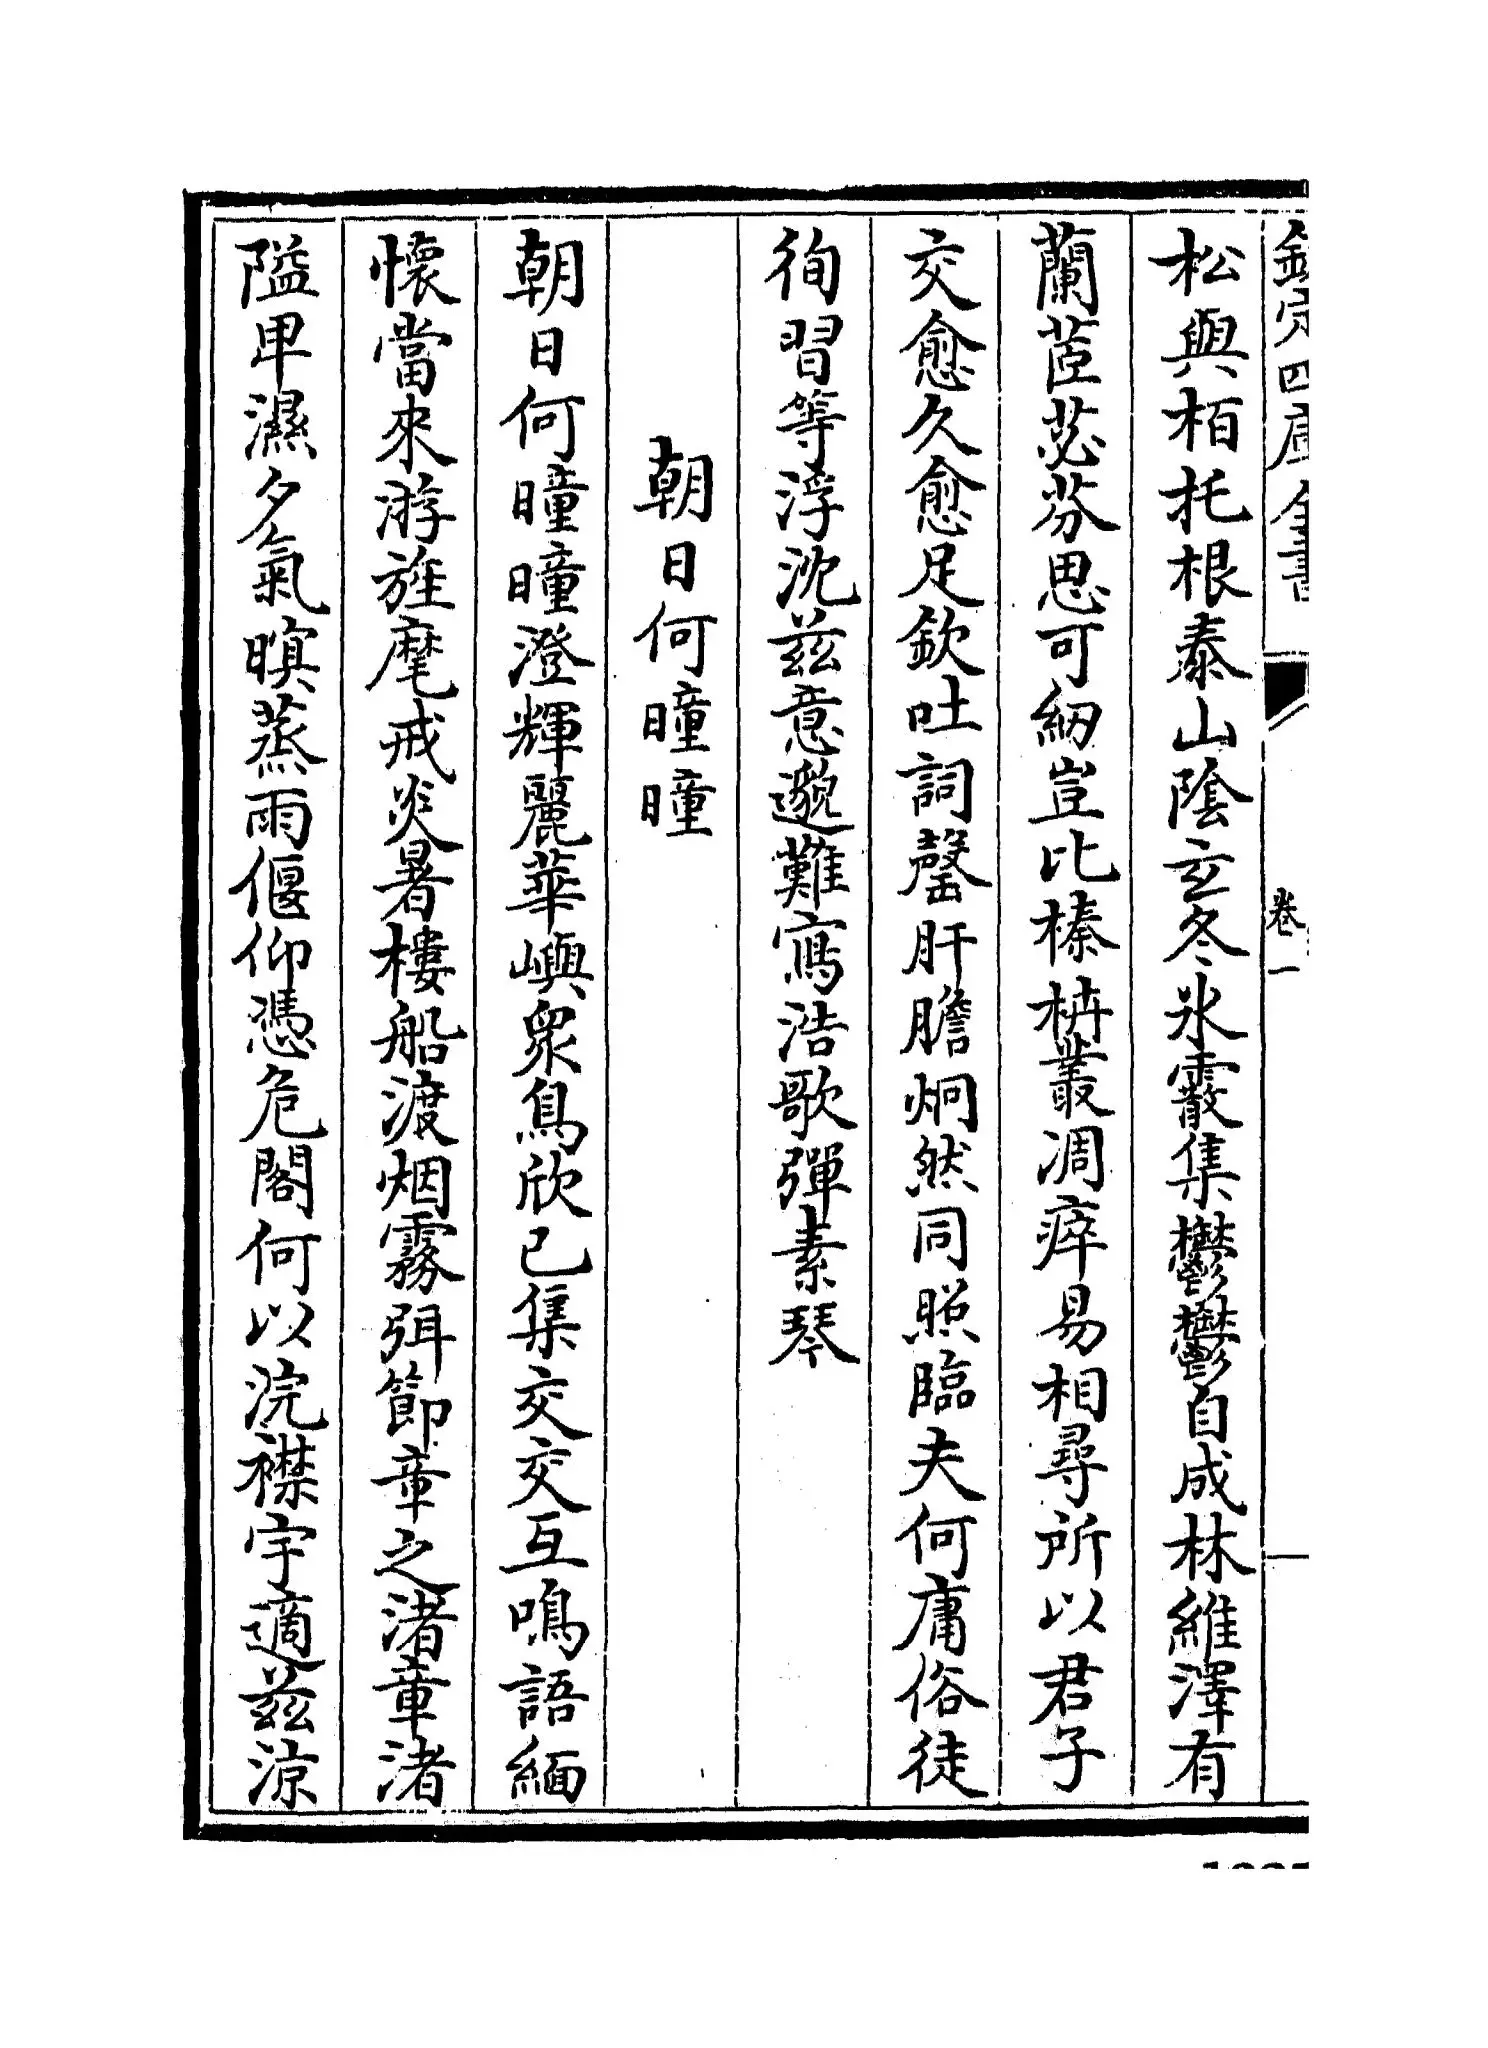 欽定四庫全書
卷一
松與栢托根泰山陰玄冬氷霰集鬱鬱自成林維澤有
蘭茝苾芬思可紉豈比榛枿叢凋瘁易相尋所以君子
交愈久愈足欽吐詞罄肝膽炯然同照臨夫何庸俗徒
徇習等浮沈兹意邈難寫浩歌彈素琴
朝日何曈曈
朝日何曈曈澄輝麗華嶼衆鳥欣已集交交互鳴語緬
懷當來游旌麾戒炎暑樓船渡烟霧弭節章之渚章渚
隘卑濕夕氣暝蒸雨偃仰憑危閣何以浣襟宇適兹涼